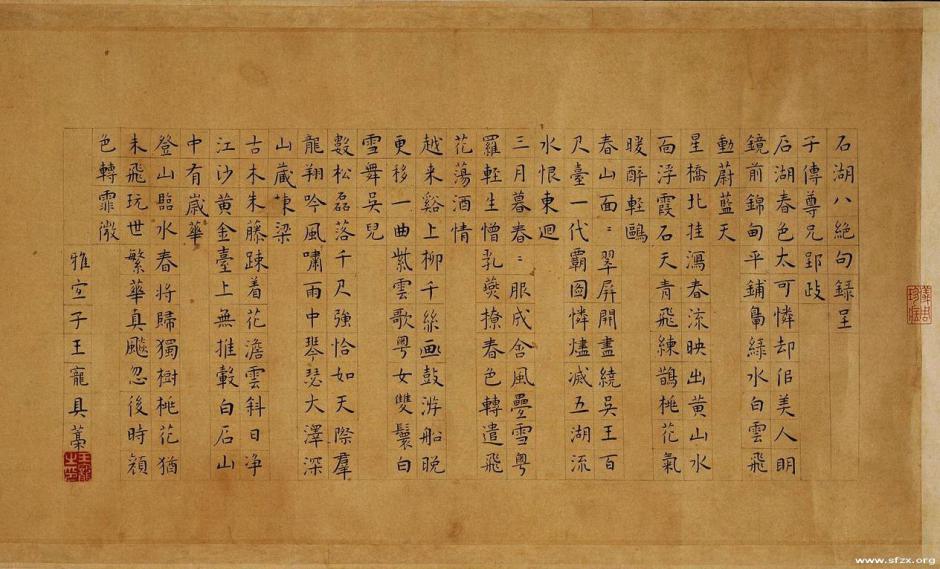 石湖八絶句録呈
子傳尊兄郢政
石湖春色太可憐却佀美人明
鏡前錦甸平鋪鳧緑水白雲飛
動蔚藍天
星橋北挂瀉春流映出黄山水
面浮霞石天青飛練鵲桃花氣
暖醉輕鷗
春山面〻翠屏開盡繞吳王百
尺臺一代霸圖憐燼滅五湖流
水恨東迴
三月暮春〻服成含風疊雪粤
羅輕生憎乳燕撩春色轉遣飛
花蕩酒情
越来谿上柳千絲画鼓游船晚
更移一曲紫雲歌粤女雙鬟白
雪舞吳兒
數松磊落千尺強恰如天際羣
龍翔吟風嘯雨中琴瑟大澤深
山蔵棟梁
古木朱藤踈着花澹雲斜日净
江沙黄金臺上無推轂白石山
中有歳華
登山臨水春將歸獨樹桃花猶
未飛玩世繁華真飈忽後時顔
色轉霏微
雅宜子王寵具藁
王寵之印
www.sfzx.org